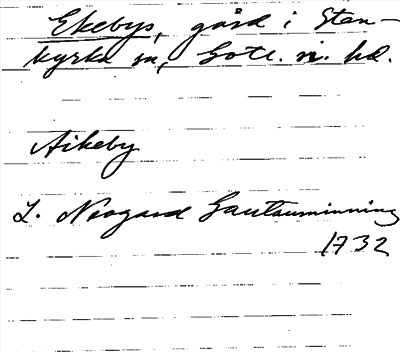 Ekebys, gård i Sten-
kyrka sn, Gotl. n. hd.
Aikeby
L. Neogard Gautauminning
1732